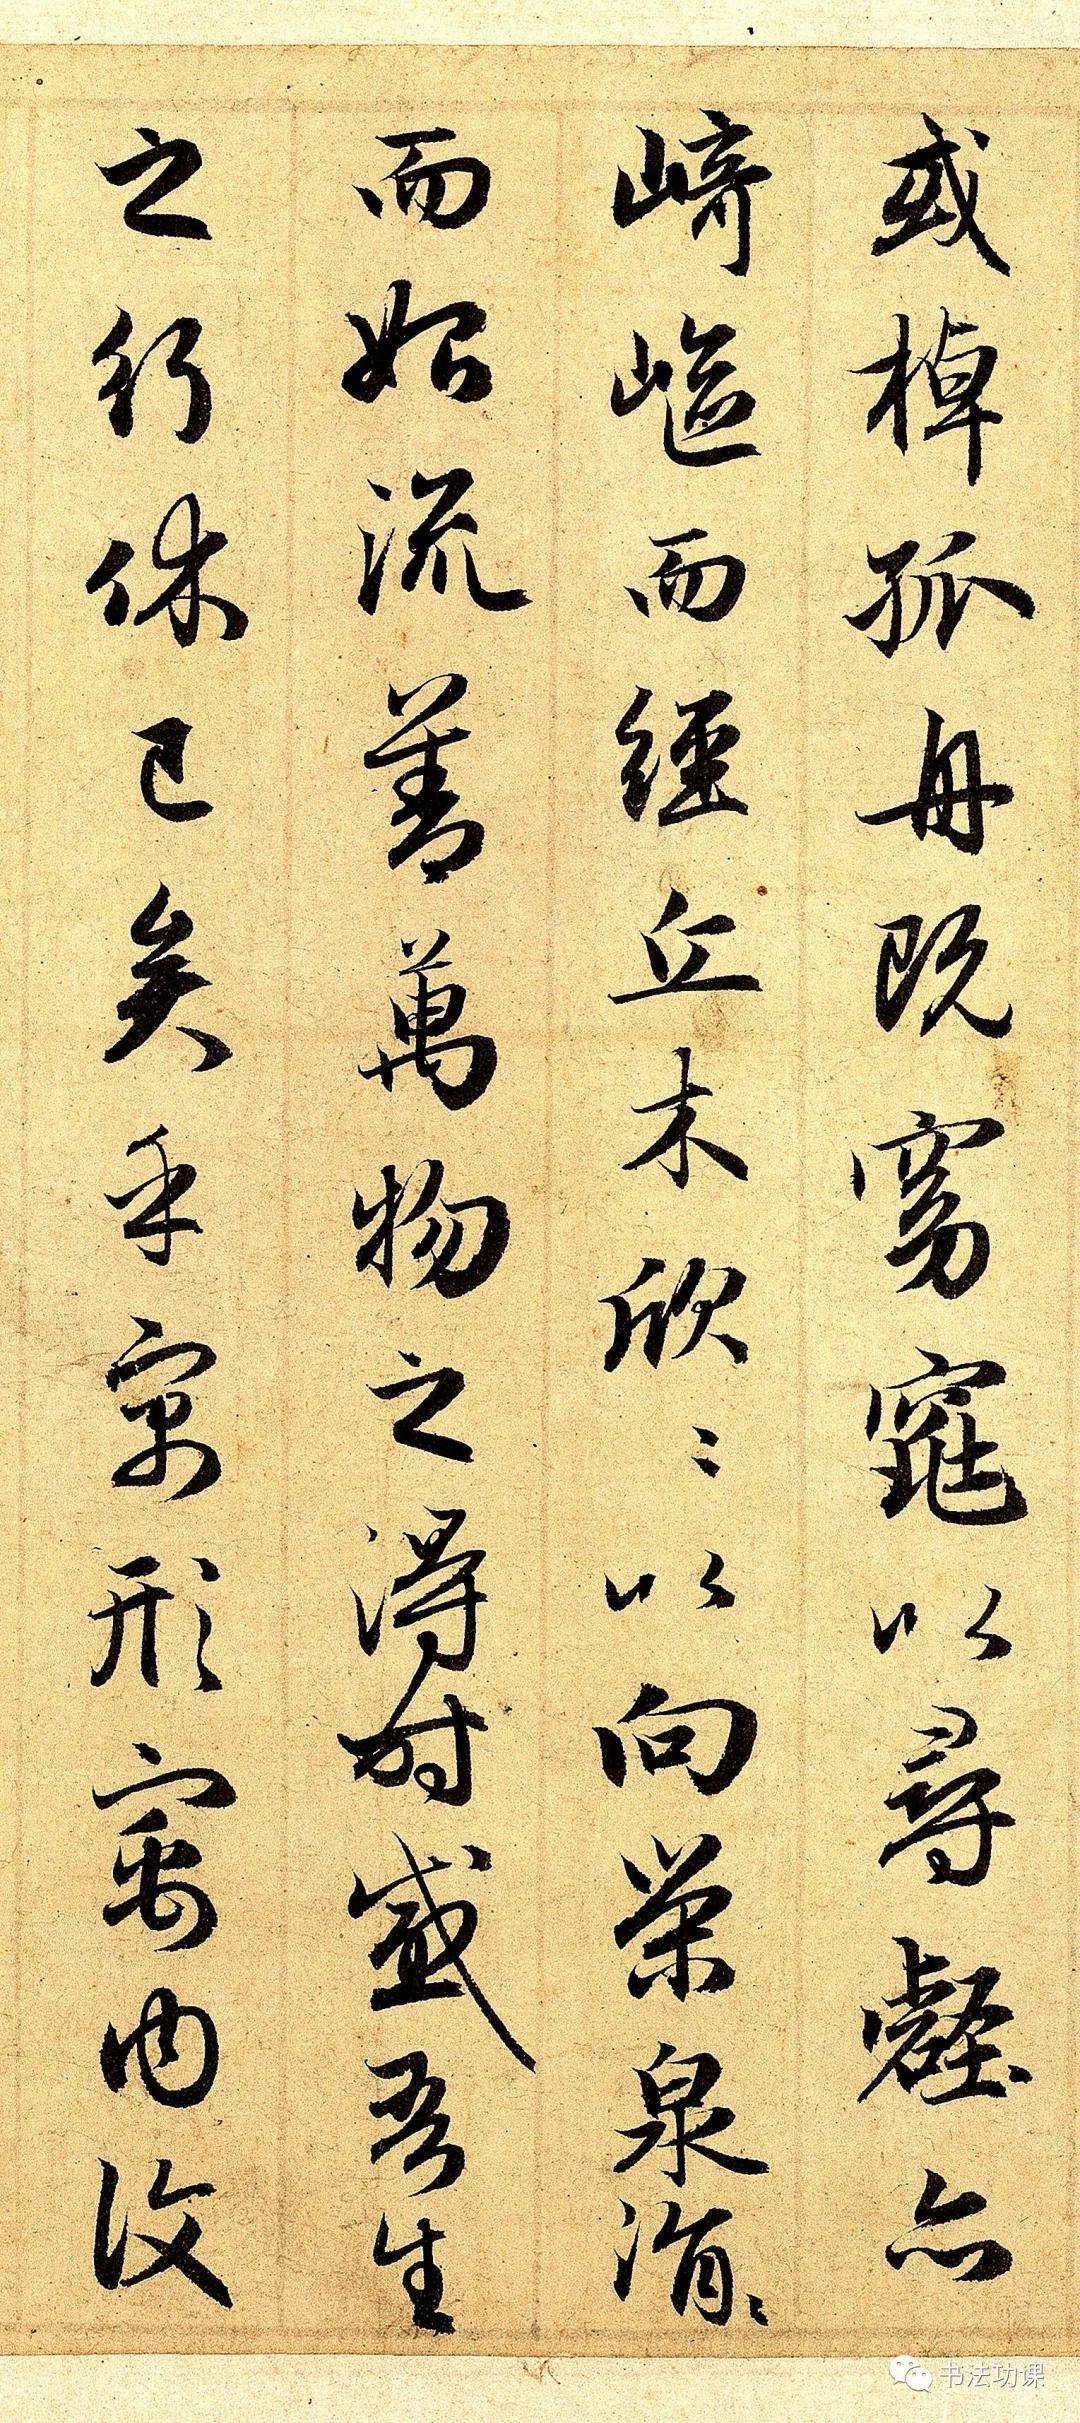 或棹孤舟既窈窕以尋壑亦
崎嶇而經丘木欣〻以向榮泉涓〻
而始流善萬物之得時感吾生
之行休已矣乎寓形寓内復
书法功课